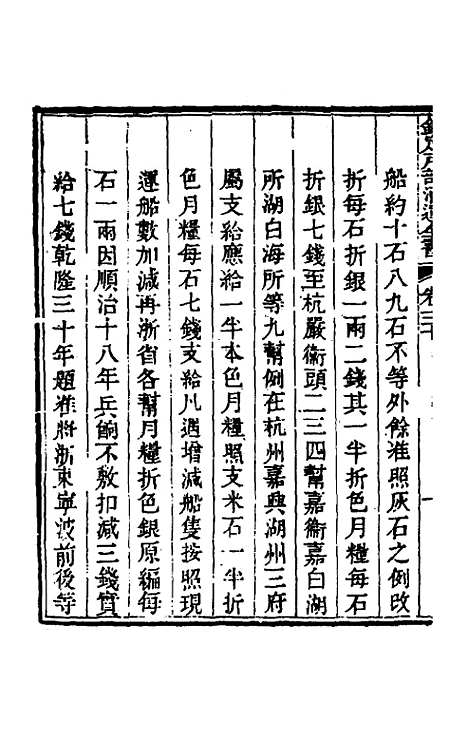 欽定戶部漕運全書 卷三十
船約十石八九石不等外餘准照灰石之例改
折每石折銀一兩二錢其一半折色月糧每石
折銀七錢至杭嚴衞頭二三四幫嘉衞嘉白湖
所湖白海所等九幫例在杭州嘉興湖州三府
屬支給應給一半本色月糧照支米石一半折
色月糧每石七錢支給凡遇增減船隻按照現
運船數加減再浙省各幫月糧折色銀原編每
石一兩因順治十八年兵餉不敷扣減三錢實
給七錢乾隆三十年題准將浙東寧波前後等